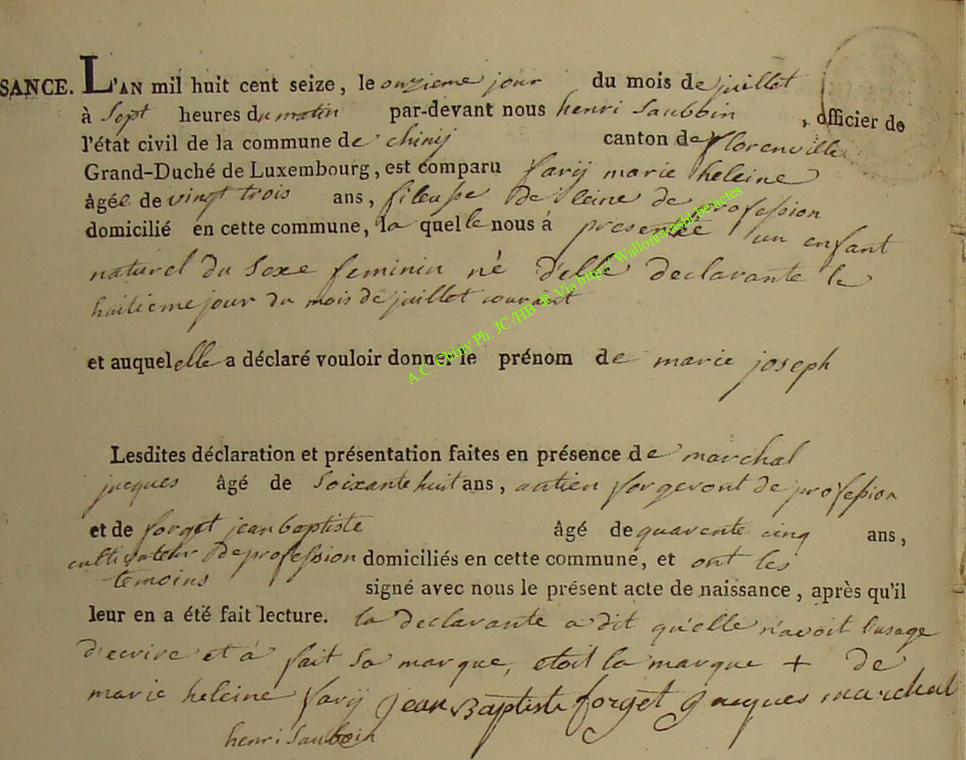 SANCE. L'AN mil huit cent seize, le onzieme jour du mois de juillet
à Sept heures du matin par-devant nous henri Saubbin, officier de
l'état civil de la commune de chinij canton de florenville
Grand-Duché de Luxembourg, est comparu farij marie heleine
âgée de vingt trois ans, fileuse de leine de profession
domicilié en cette commune, la quelle nous à presentée un enfant
naturel du Sexe feminin né d'elle declarante le
huitieme jour du mois de juillet courant
et auquel elle a déclaré vouloir donner le prénom de marie joseph
Lesdites déclaration et présentation faites en présence de marchal
jacques âgé de Soixante huit ans, antien forgeront de profession
et de forget jean baptiste âgé de quarente cinq ans,
cultivateur de profession domiciliés en cette commune, et ont les
temoins signé avec nous le présent acte de naissance, après qu'il
leur en a été fait lecture. la declarante a dit qu'elle n'avoit l'usage
d'ecrire et à fait Sa marque, etoit la marque + de
marie heleine farij jean Baptiste forget Jacques marchal
henri Saubbin